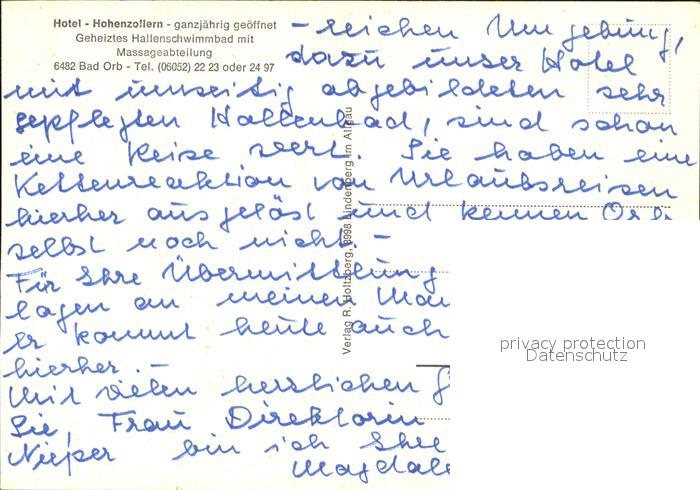 Hotel - Hohenzollern - ganzjährig geöffnet
Geheiztes Hallenschwimmbad mit
Massageabteilung
6482 Bad Orb - Tel. (06052) 22 23 oder 24 97
-reichen Umgebung,
dazu unser Hotel
mit umseitig abgebildeten sehr
gepflegten Hallenbad, sind schon
eine Reise wert. Sie haben eine
Kettenreaktion von Urlaubsreisen
hierher ausgelöst und kennen Orb
selbst noch nicht. -
Für Ihre Übermittlung
lagen an meinen Man
er kommt heute auch
hierher. -
Mit vielen herzlichen G
Sie, Frau Direktorin
Nieper bin ich Ihre
Magdale
Verlag R. Holtzberg, 8998 Lindenberg im Allgäu
privacy protection
Datenschutz